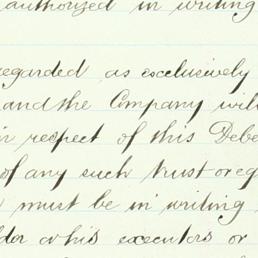 authorized in writing
regarded as exclusively
and the Company will
in respect of this Debe
of any such trust or eq
must be in writing
lder or his executors or